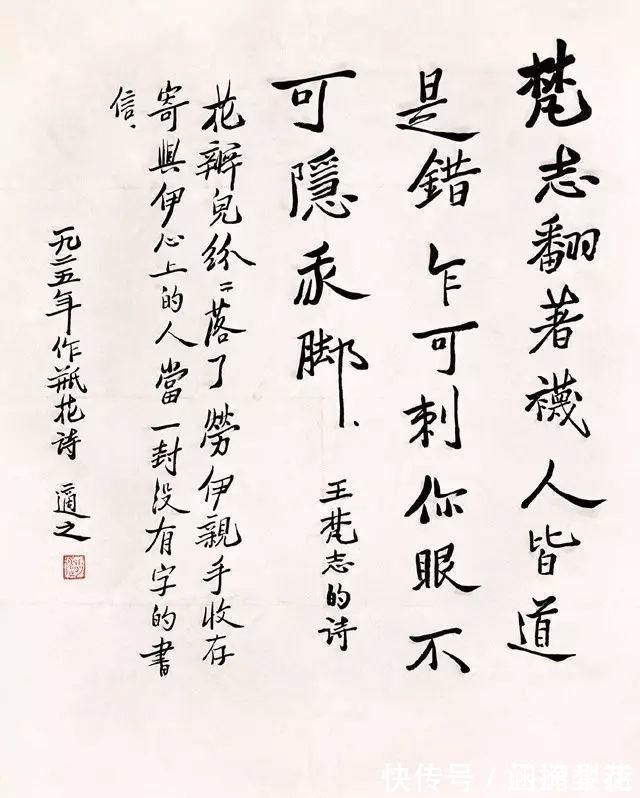 梵志翻著襪人皆道
是錯乍可刺你眼不
可隱我脚.
王梵志的诗
花瓣兒紛〻落了勞伊親手收存
寄與伊心上的人當一封没有字的書
信.
一九二五年作瓶花诗 適之
快传号 / 涵掩梨花